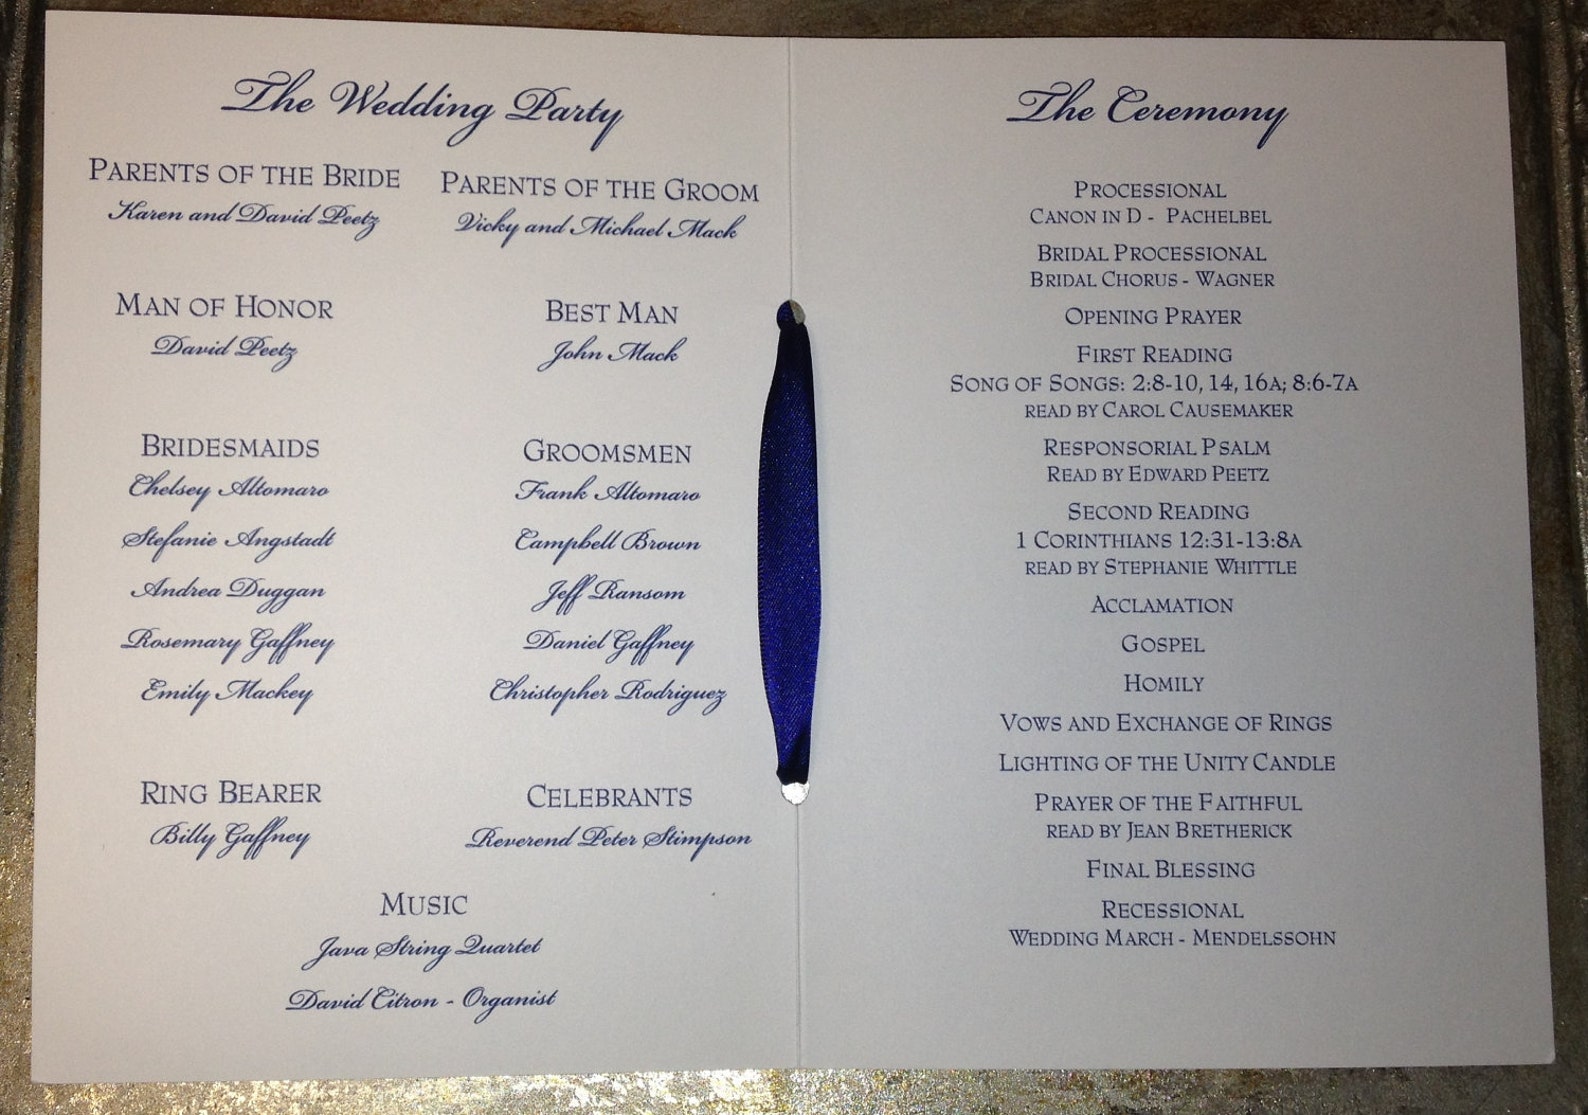 The Wedding Party
Parents of the Bride
Karen and David Peetz
Parents of the Groom
Vicky and Michael Mack
Man of Honor
David Peetz
Best Man
John Mack
Bridesmaids
Chelsey Altomaro
Stefanie Angstadt
Andrea Duggan
Rosemary Gaffney
Emily Mackey
Groomsmen
Frank Altomaro
Campbell Brown
Jeff Ransom
Daniel Gaffney
Christopher Rodriguez
Ring Bearer
Billy Gaffney
Celebrants
Reverend Peter Stimpson
Music
Java String Quartet
David Citron - Organist
The Ceremony
Processional
Canon in D - Pachelbel
Bridal Processional
Bridal Chorus - Wagner
Opening Prayer
First Reading
Song of Songs: 2:8-10, 14, 16a; 8:6-7a
read by Carol Causemaker
Responsorial Psalm
Read by Edward Peetz
Second Reading
1 Corinthians 12:31-13:8a
read by Stephanie Whittle
Acclamation
Gospel
Homily
Vows and Exchange of Rings
Lighting of the Unity Candle
Prayer of the Faithful
read by Jean Bretherick
Final Blessing
Recessional
Wedding March - Mendelssohn